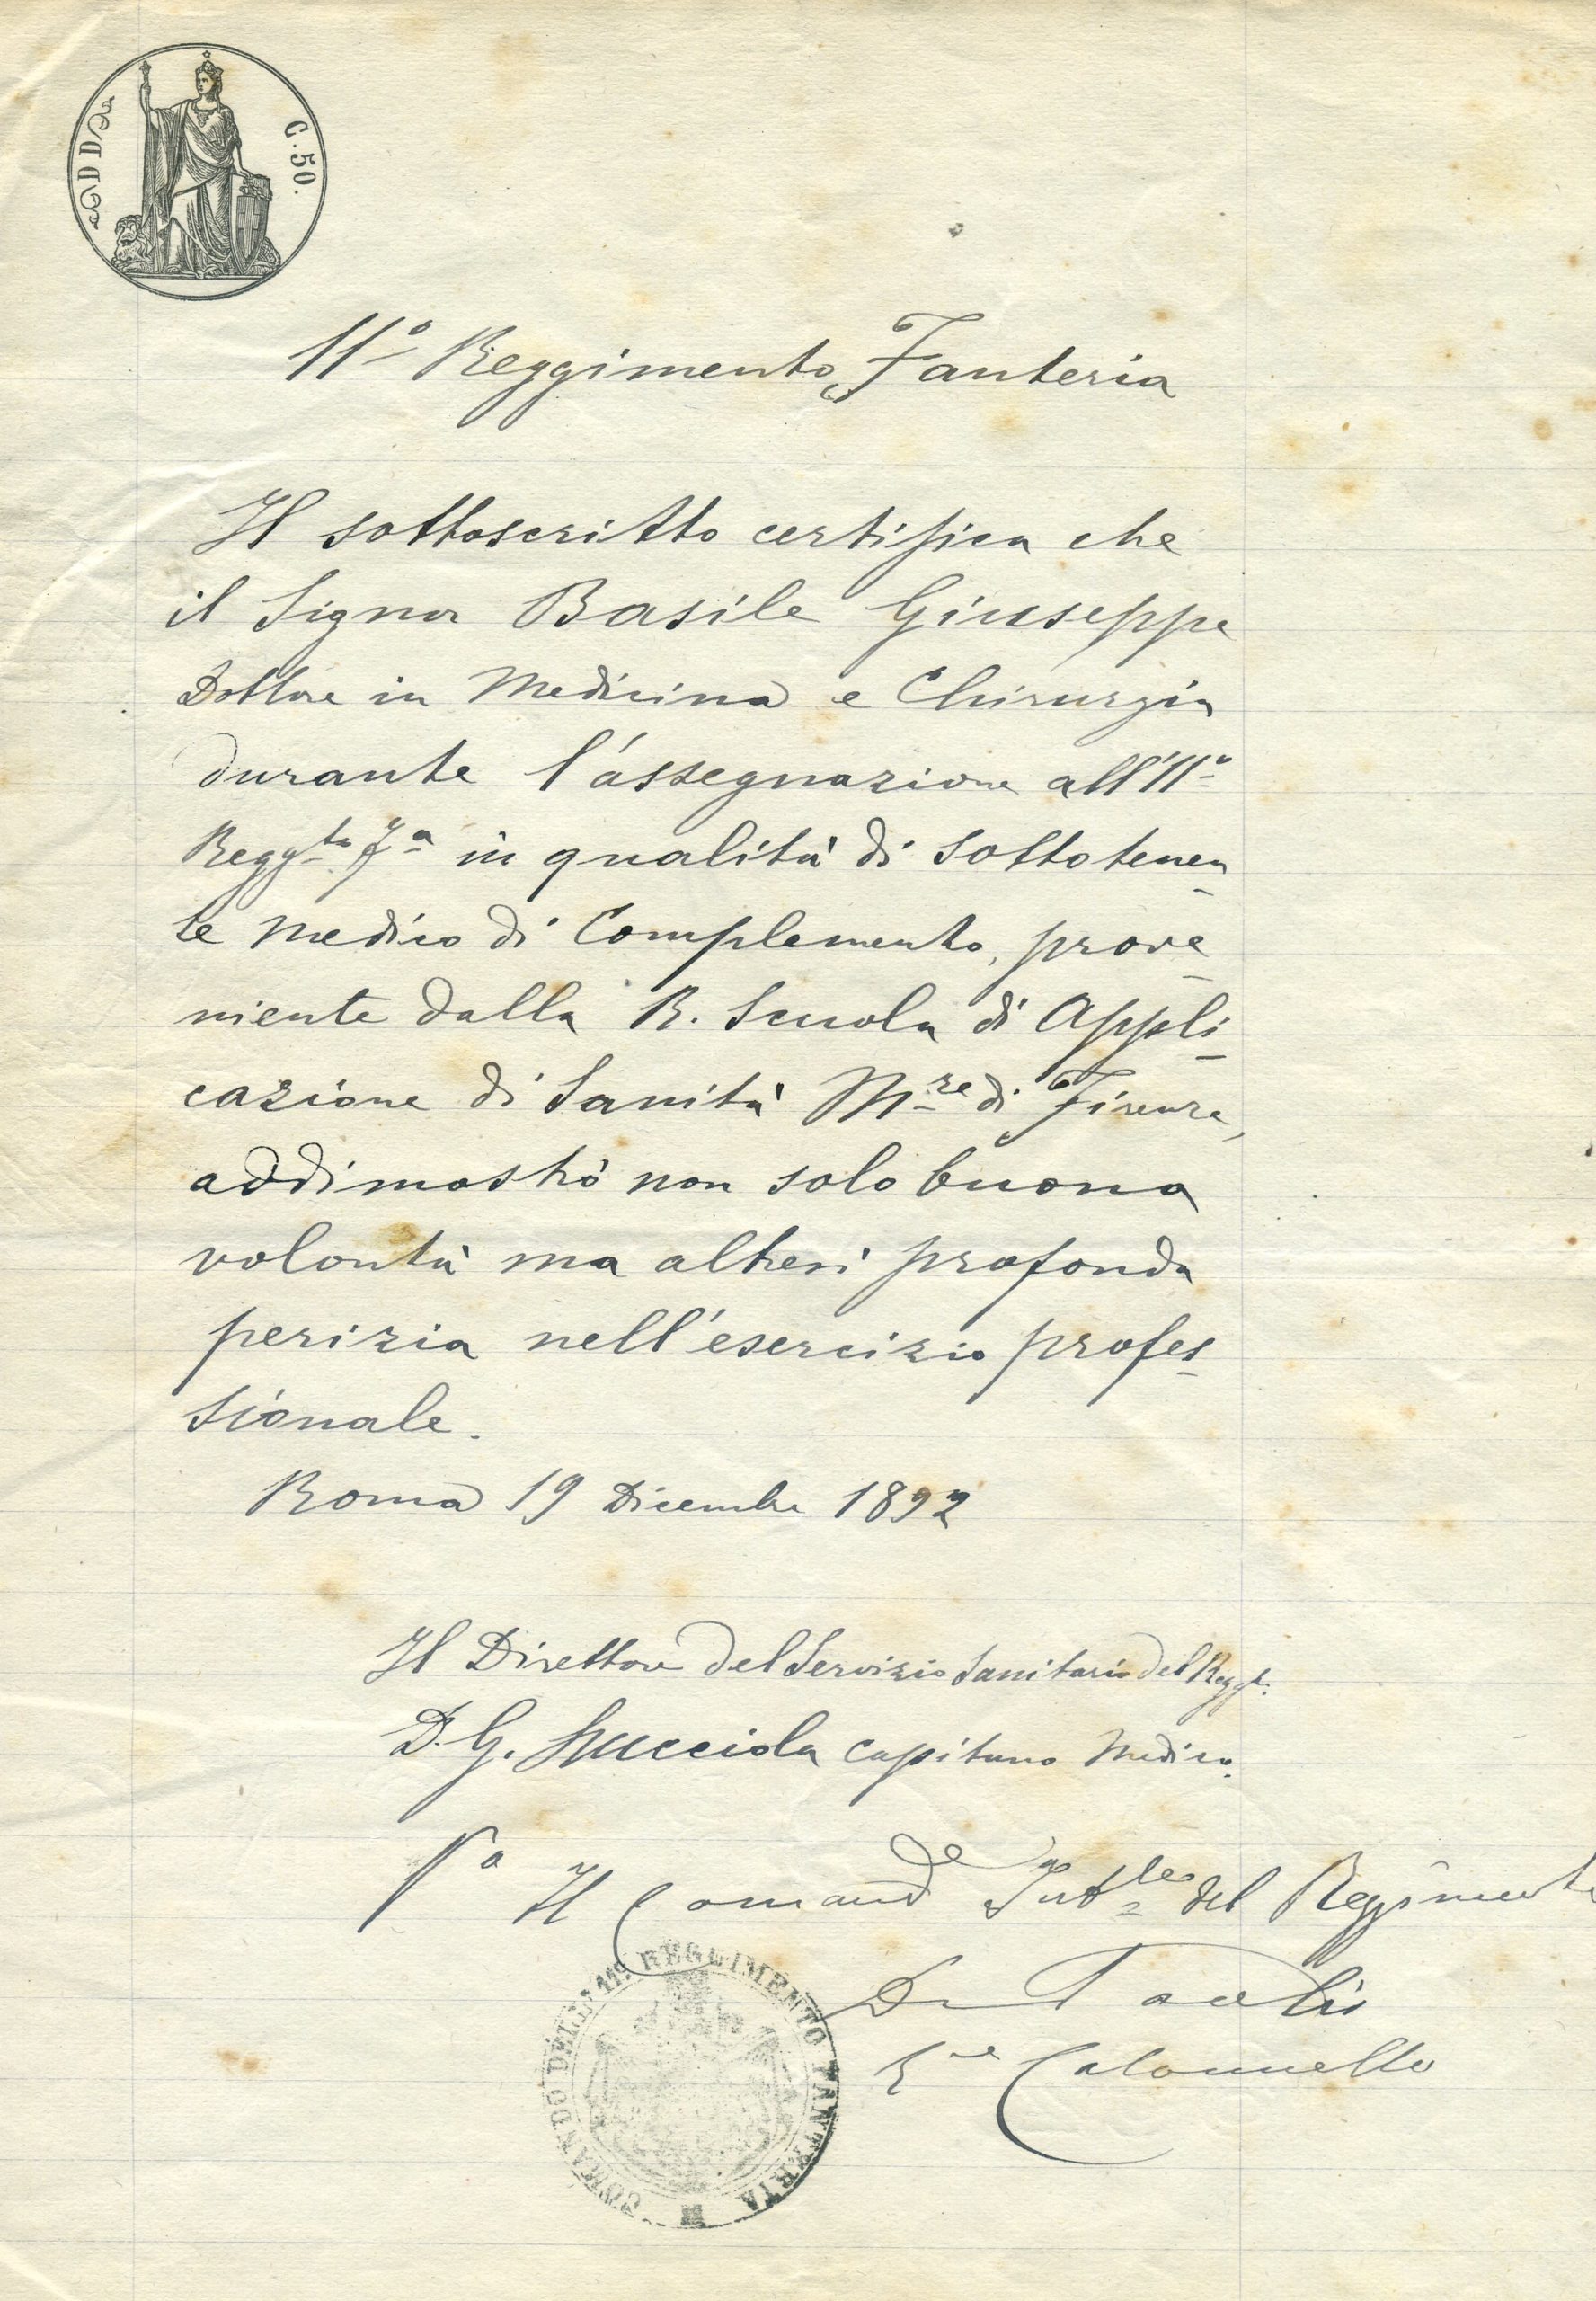 C. 50.
11º Reggimento Fanteria
Il sottoscritto certifica che
il Signor Basile Giuseppe
Dottore in Medicina e Chirurgia
durante l'assegnazione all'11º
Reggto Fa in qualità di Sottotenen
te medico di Complemento, prove
niente dalla R. Scuola di Appli
cazione di Sanità Mre di Firenze,
addimostrò non solo buona
volontà ma altresì profonda
perizia nell'esercizio profes
sionale.
Roma 19 Dicembre 1892
Il Direttore del Servizio Sanitario del Reggto.
D. G. capitano Medico.
Vº Il Comand del Reggimento
Colonnello
COMANDO DELL'11º REGGIMENTO FANTERIA